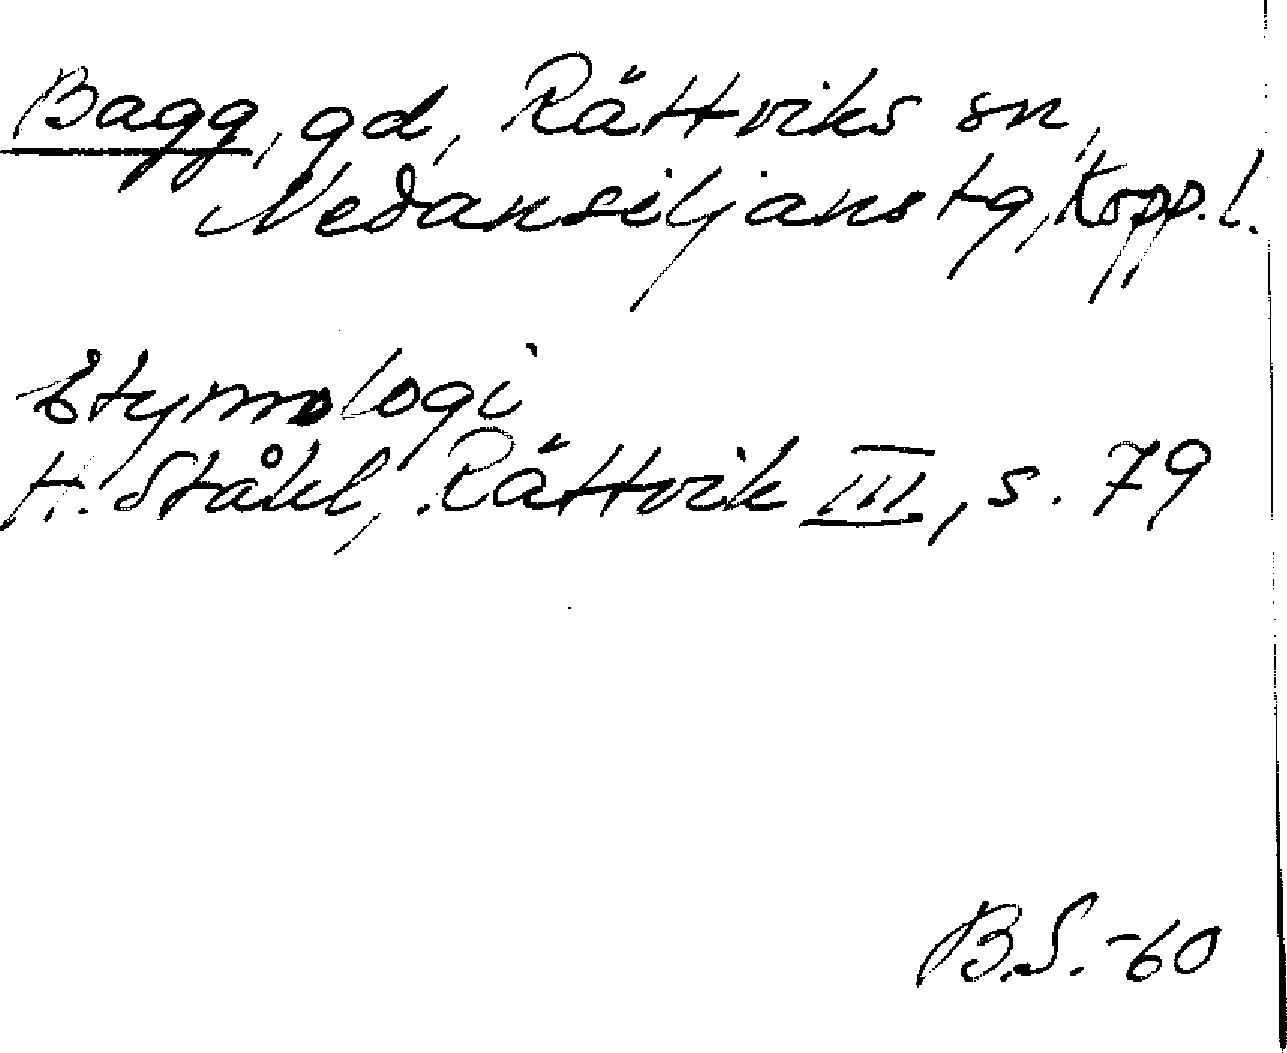 Bagg, gd, Rättviks sn,
Nedansiljans tg, Kopp. l.
Etymologi
H. Ståhl, Rättvik III, s. 79
B.S.-60